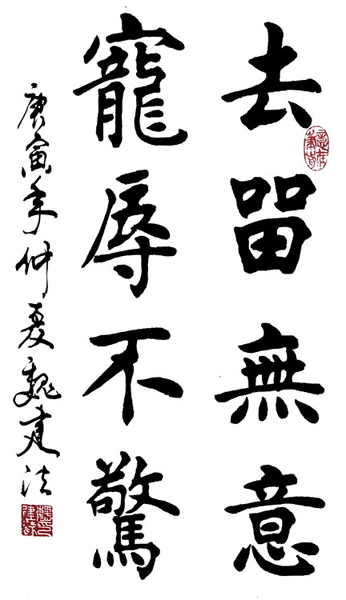 去留無意
寵辱不驚
庚寅年仲夏魏建法